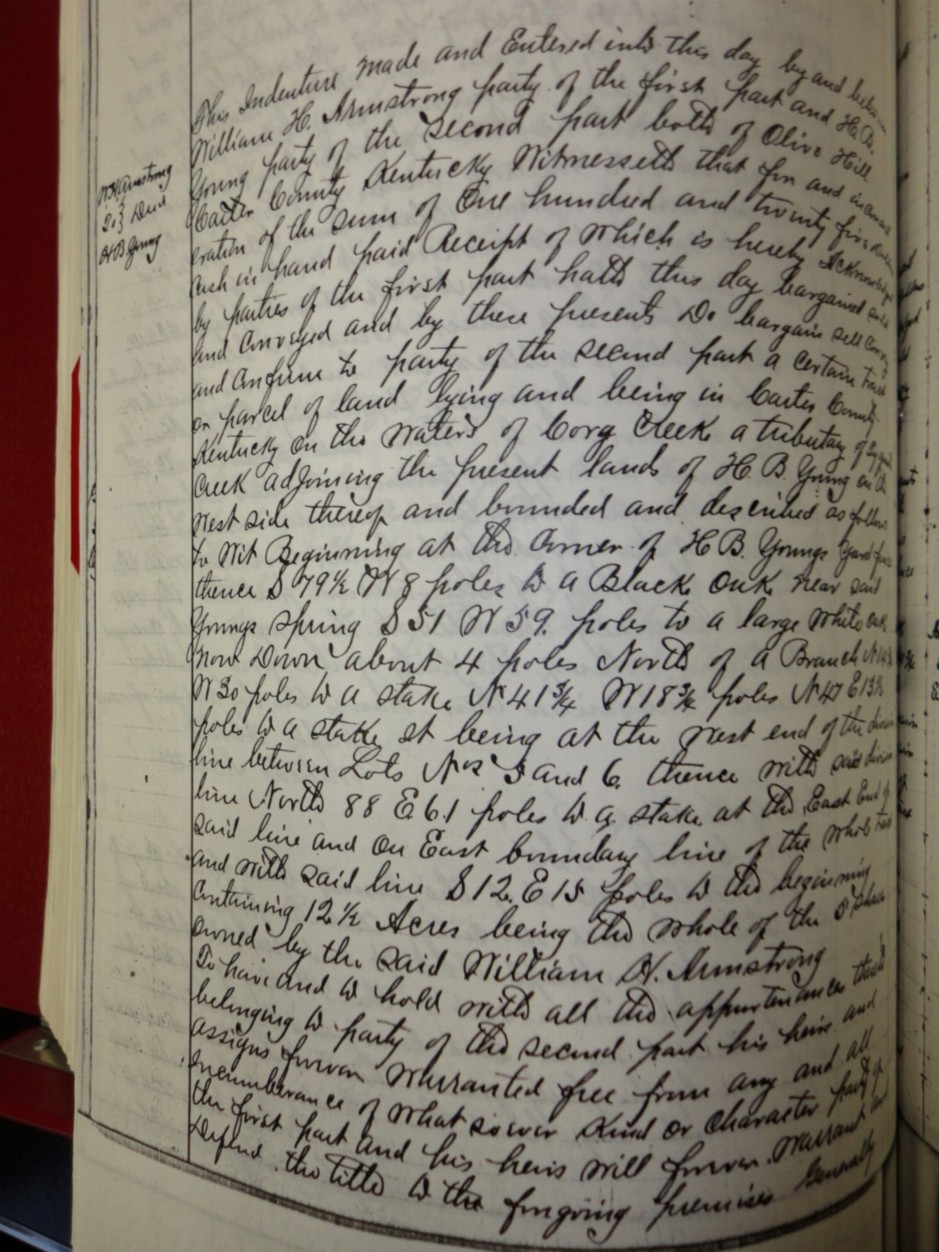 This Indenture made and Entered into this day by and between
William H. Armstrong party of the first part and H.B.
Young party of the second part both of Olive Hill
Carter County Kentucky Witnesseth that for and in consid
eration of the sum of One hundred and twenty five dollars
Cash in hand paid Receipt of which is hereby acknowledged
by parties of the first part hath this day bargained sold
and Conveyed and by these presents Do bargain sell Convey
and Confirm to party of the second part a certain tract
or parcel of land lying and being in Carter County
Kentucky on the waters of Corg Creek a tributary of
Creek adjoining the present lands of H. B. Young on the
West side thereof and bounded and described as follows
to Wit Beginning at the Corner of H B. Youngs yard fence
thence S 79½ W 8 poles to a Black Oak near said
Youngs spring S 51 W 59. poles to a large White oak
now Down about 4 poles North of a Branch
W 30 poles to a stake N 41¾ W 18¾ poles N 47 E 13½
poles to a stake st being at the West end of the division
line between Lots Nos 5 and 6. thence with said division
line North 88 E 61 poles to a stake at the East End of
said line and on East boundary line of the whole tract
and with said line S 12. E 15 poles to the beginning
Containing 12½ Acres being the whole of the
owned by the said William H. Armstrong
To have and to hold with all the appurtenances
belonging to party of the second part his heirs and
assigns forever Warranted free from any and all
Incumberance of what soever Kind or Character party of
the first part and his heirs will forever Warrant and
Defend the title to the forgoing premises Generally
W H Armstrong
To } Deed
H B Young